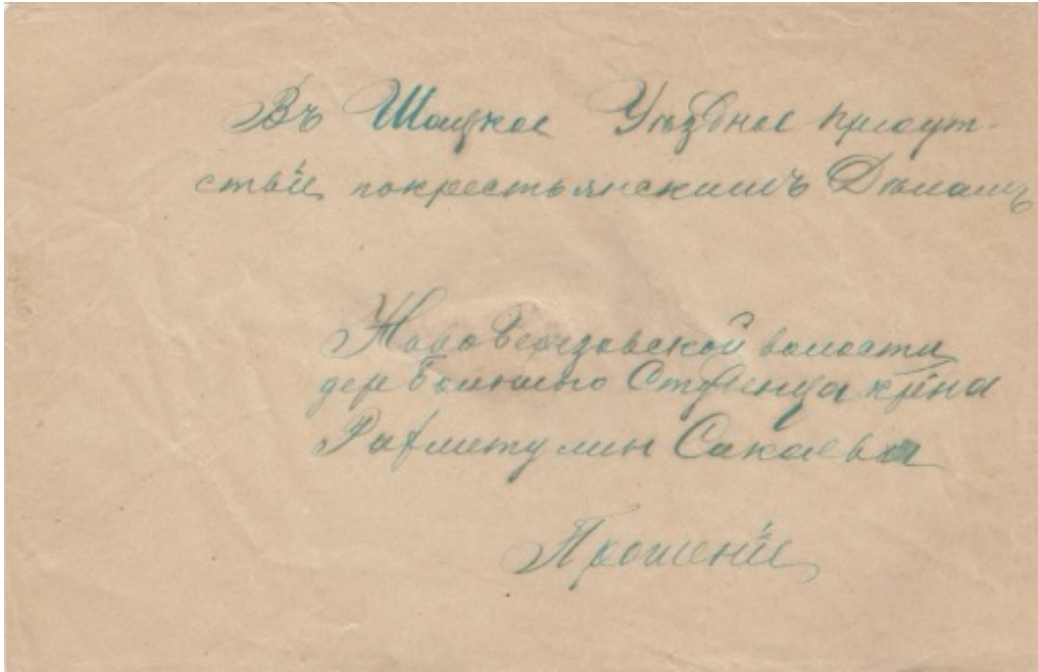 Въ Шацкое Уѣздное присут-
ствіе покрестьянскимъ Дѣламъ
Новоберезовской волости
дер Большого Студенца кр-на
Рахметулин Сакаева
Прошеніе